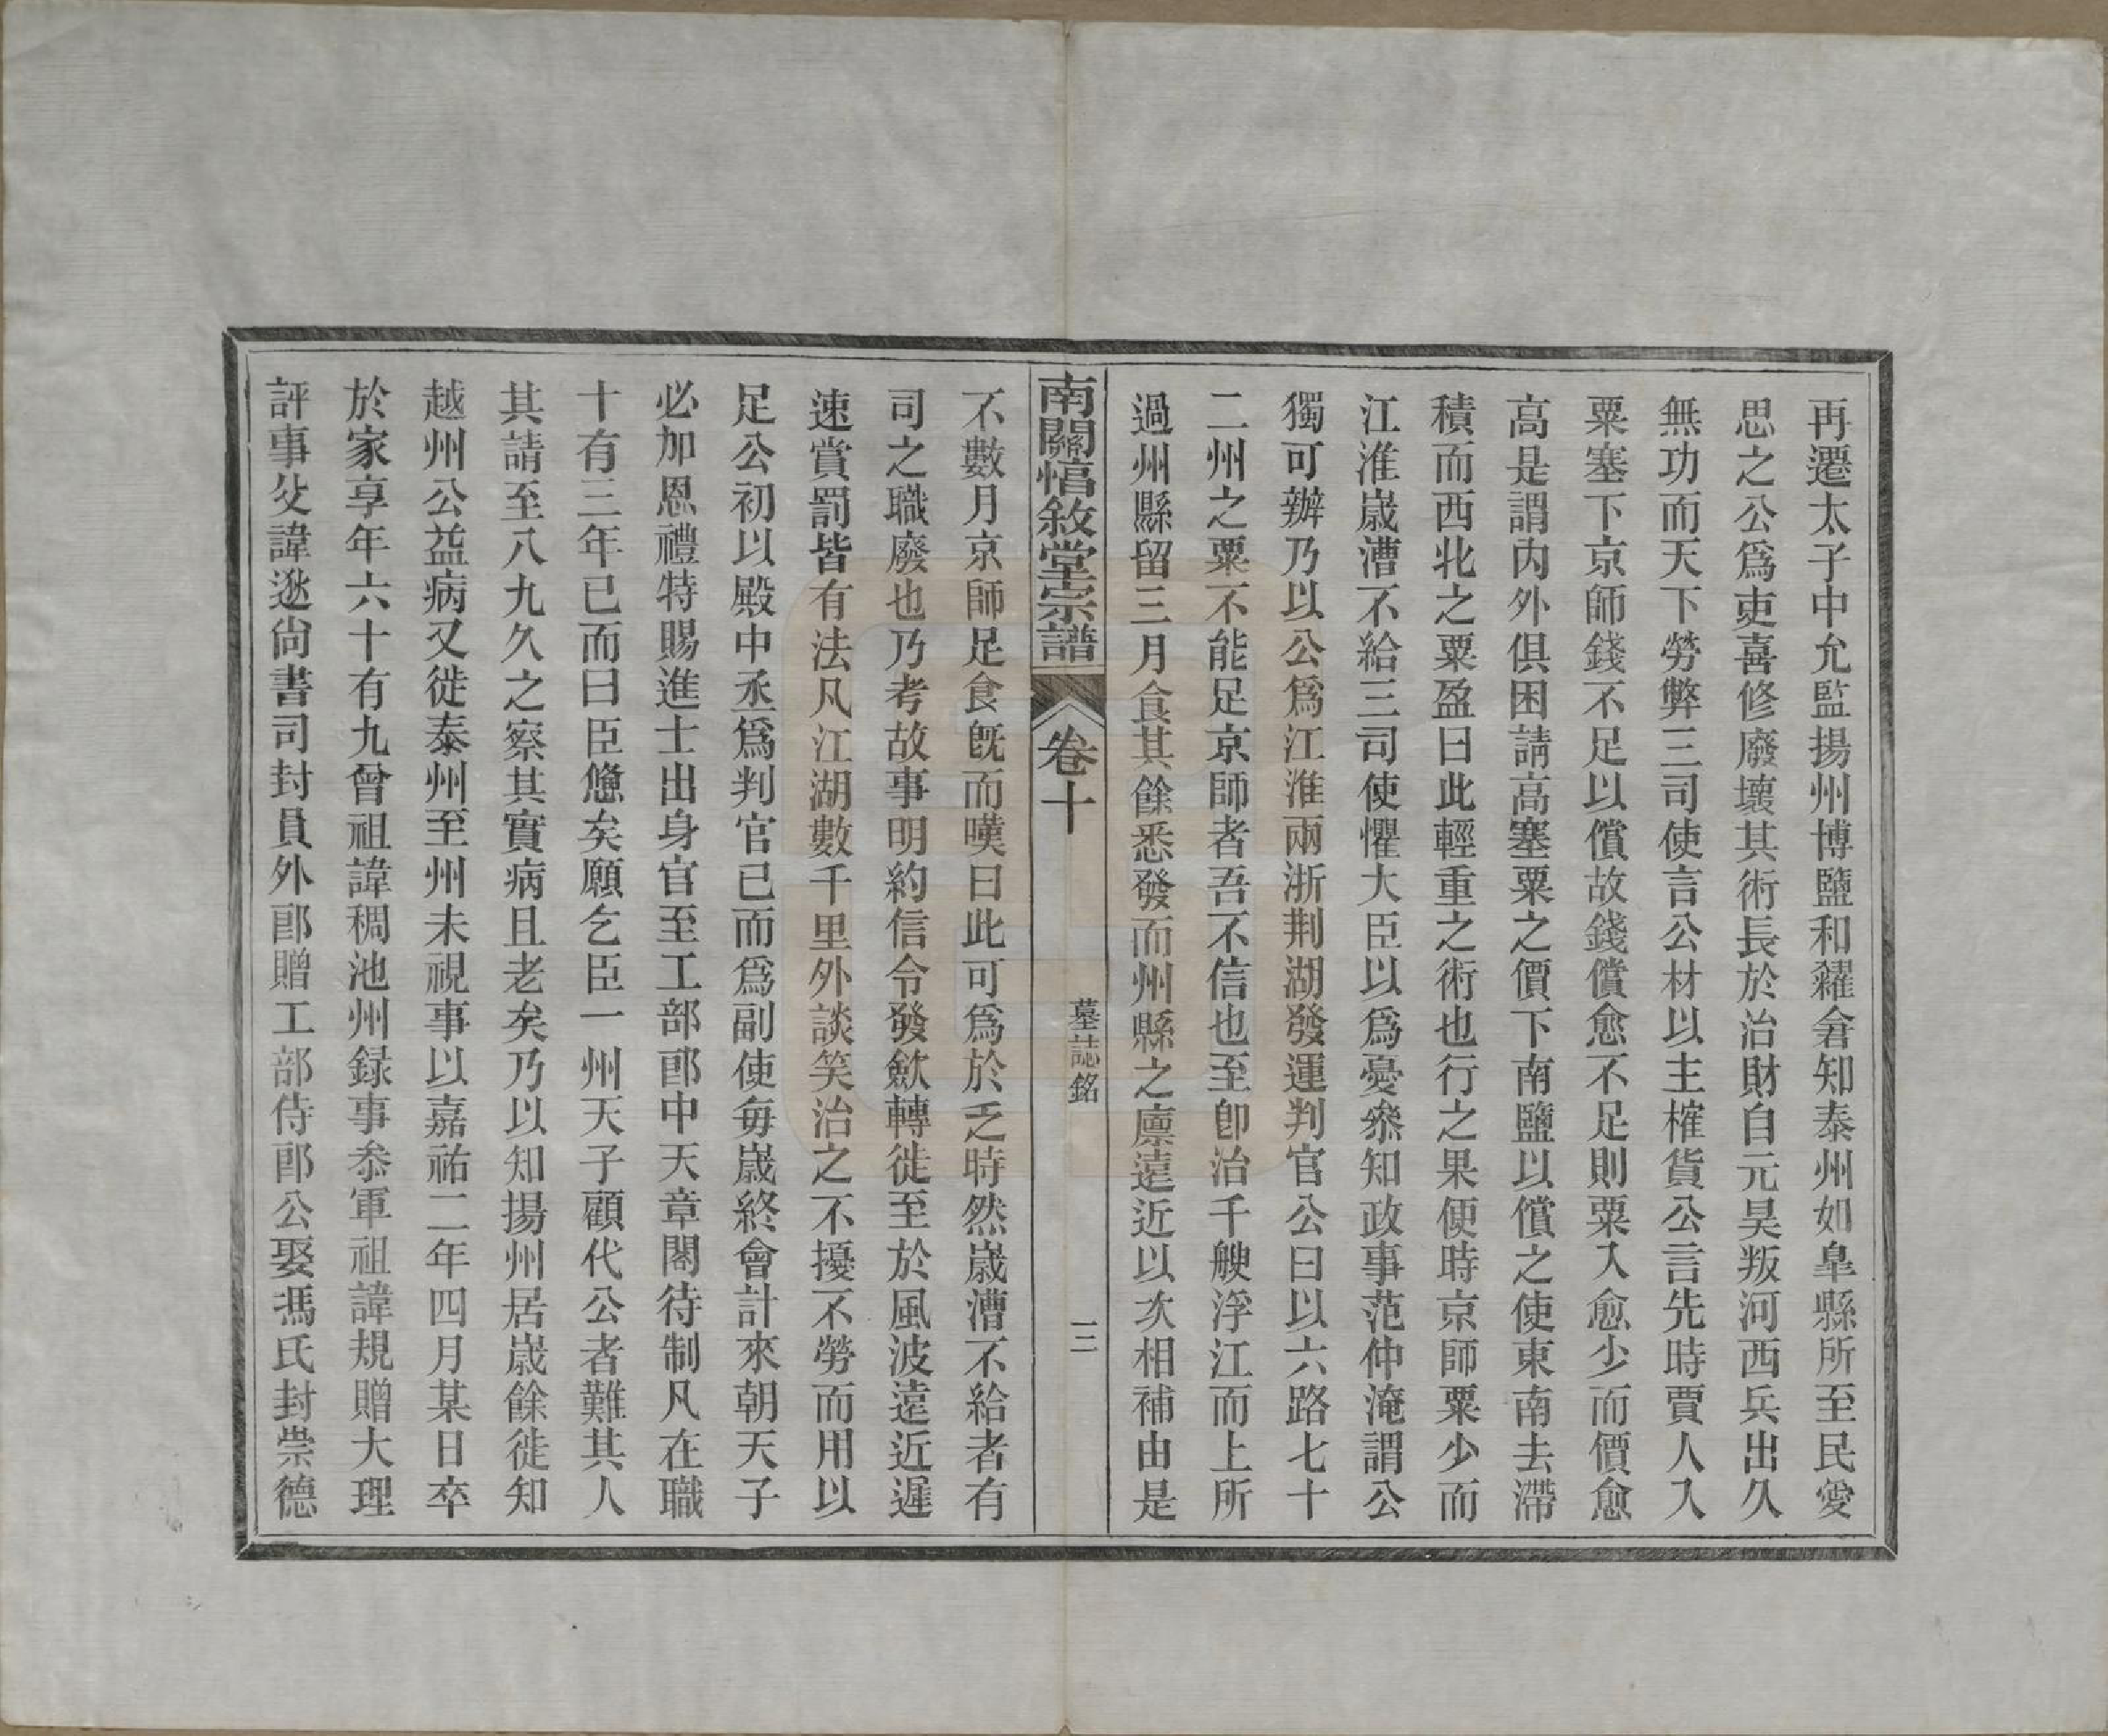 再遷太子中允監揚州博鹽和糴倉知泰州如臯縣所至民愛
思之公爲吏喜修廢壞其術長於治財自元昊叛河西兵出久
無功而天下勞弊三司使言公材以主榷貨公言先時賈人入
粟塞下京師錢不足以償故錢償愈不足則粟入愈少而價愈
高是謂內外俱困請高塞粟之價下南鹽以償之使東南去滯
積而西北之粟盈曰此輕重之術也行之果便時京師粟少而
江淮嵗漕不給三司使懼大臣以爲憂叅知政事范仲淹謂公
獨可辦乃以公爲江淮兩浙荆湖發運判官公曰以六路七十
二州之粟不能足京師者吾不信也至卽治千艘浮江而上所
過州縣留三月食其餘悉發而州縣之廪遠近以次相補由是
南關惇敘堂宗譜 卷十 墓誌銘 三
不數月京師足食旣而嘆曰此可爲於乏時然嵗漕不給者有
司之職廢也乃考故事明約信令發斂轉徙至於風波遠近遲
速賞罰皆有法凡江湖數千里外談笑治之不擾不勞而用以
足公初以殿中丞爲判官已而爲副使每嵗終會計來朝天子
必加恩禮特賜進士出身官至工部郎中天章閣待制凡在職
十有三年已而曰臣憊矣願乞臣一州天子顧代公者難其人
其請至八九久之察其實病且老矣乃以知揚州居嵗餘徙知
越州公益病又徙泰州至州未視事以嘉祐二年四月某日卒
於家享年六十有九曾祖諱稠池州録事叅軍祖諱規贈大理
評事父諱逖尙書司封員外郎贈工部侍郎公娶馮氏封崇德